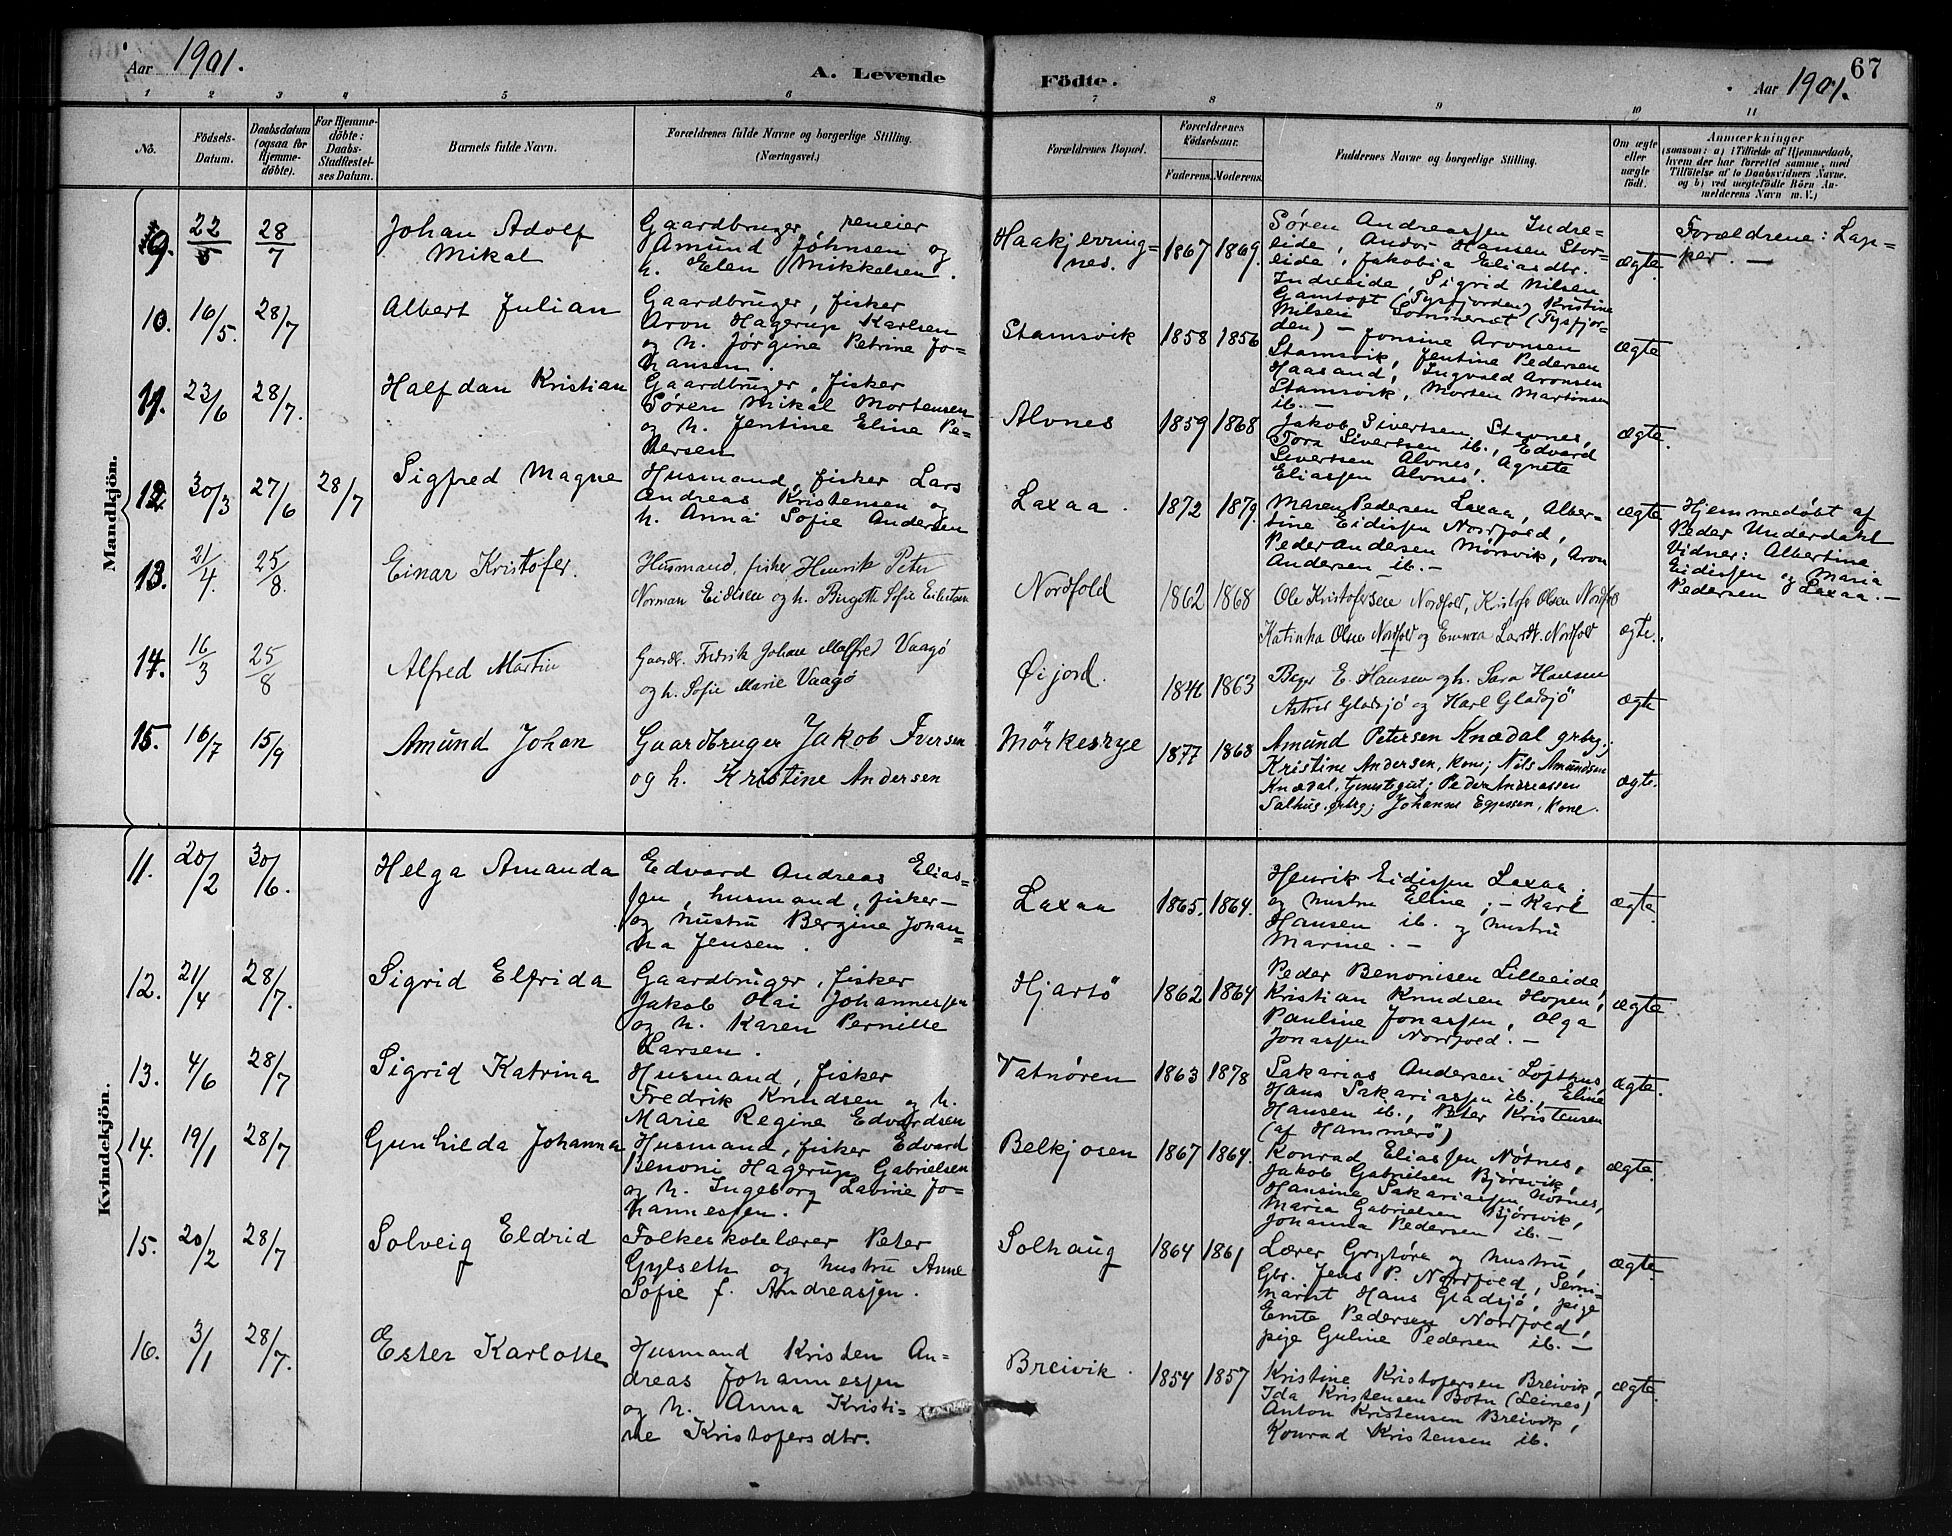 Aar 1901.
A. Levende
Födte.
Aar 1901.
67
1 2 3 4 5 6 7 8 9 10 11
No.
Födsels-Datum.
Daabsdatum (ogsaa for Hjemme-döbte).
For Hjemme-döbte: Daabs-Stadfæstel-ses Datum.
Barnets fulde Navn.
Forældrenes fulde Navne og borgerlige Stilling. (Næringsvei.)
Forældrenes Bopæl.
Forældrenes Födselsaar.
Faderens. Moderens.
Faddernes Navne og borgerlige Stilling.
Om ægte eller uægte födt.
Anmærkninger
(saasom: a) i Tilfælde af Hjemmedaab, hvem der har forrettet samme, med Tilföielse af to Daabsvidners Navne. og b) ved uægtefödte Börn An-melderens Navn m. V.)
Mandkjön.
9. 22/5 28/7
Johan Adolf
Mikal
Gaardbruger,
Amund Johnsen og
h. Elen Mikkelsen.
Haakjerring-
nes.
1867 1869.
Søren Andreassen Indre-
eide, Andor Hansen Stor-
eide, Jakobia Eliasdtr.
Indreeide, Sigrid Nilsen
Gamtoft (Tysfjorden) Kristine
Nilsen Sommerset (Tysfjor-
den) —
ægte
Forældrene: Lap-
per. —
10. 16/5. 28/7
Albert Julian
Gaardbruger, fisker
Aron Hagerup Karlsen
og h. Jørgine Petrine Jo-
hansen.
Stamsvik
1858 1856
Jonsine Aronsen
Stamsvik, Jentine Pedersen
Haasand, Ingvald Aronsen
Stamsvik, Morten Martinsen
ib. —
ægte
11. 23/6 28/7.
Halfdan Kristian
Gaardbruger, fisker
Søren Mikal Mortensen
og h. Jentine Eline Pe-
dersen
Alvnes
1859 1868
Jakob Sivertsen Stavnes,
Tora Sivertsen ib., Edvard
Sivertsen Alvnes, Agnete
Eliassen Alvnes.
ægte.
12. 30/3 27/6 28/7
Sigfred Magne
Husmand, fisker Lars
Andreas Kristensen og
h. Anna Sofie Andersen
Laxaa.
1872 1879.
Maren Pedersen Laxaa, Alber-
tine Eidissen Nordfold,
Peder Andersen Mørsvik, Aron
Andersen ib. —
ægte
Hjemmedøbt af
Peder Underdahl
Vidner: Albertine
Eidissen og Maria
Pedersen Laxaa. —
13. 21/4. 25/8.
Einar Kristofer.
Husmand, fisker Henrik Peter
Norman Eidissen og h. Birgitte Sofie Eilertsen
Nordfold
1862 1868
Ole Kristofersen Nordfold, Kristofer Olsen Nordfold
Katinka Olsen Nordfold og Emma Larsdt. Nordfold
ægte.
14. 16/3 25/8
Alfred Martin
Gaardbr. Fredrik Johan Malfred Vaagö
og h. Sofie Marie Vaagö
Øijord.
1846 1863
E. Hansen og h. Sara Hansen
Astrid Gladsjö og Karl Gladsjö
ægte
15. 16/7 15/9
Amund Johan
Gaardbruger Jakob Iversen
og h. Kristine Andersen
Mörkesrye
1877 1868
Amund Petersen Knædal grbrg.;
Kristine Andersen, Kone; Nils Amundsen
Knædal, tjenestegut; Peder Andreassen
Salhus, grbrg; Johanne Eggesen, Kone.
ægte.
Kvindekjön.
11. 20/2 30/6.
Helga Amanda
Edvard Andreas Elias-
sen, husmand, fisker —
og hustru Bergine Johan-
na Jensen.
Laxaa
1865. 1864.
Henrik Eidissen Laxaa.
og hustru Eline; — Karl
Hansen ib. og hustru
Marine. —
ægte.
12. 21/4 28/7.
Sigrid Elfrida
Gaardbruger, fisker
Jakob Olai Johannessen
og h. Karen Pernille
Larsen.
Hjartö
1862 1864
Peder Benonisen Lilleeide,
Kristian Knudsen Hopen,
Pauline Jonassen, Olga
Jonassen Nordfold. —
ægte
13. 4/6 28/7
Sigrid Katrina
Husmand, fisker
Fredrik Knudsen og h.
Marie Regine Edvardsen
Vatnören
1863 1878
Sakarias Andersen Lofthus,
Hans Sakariassen ib., Eline
Hansen ib., Peter Kristensen
(af Hammerö)
ægte.
14. 19/1 28/7
Gunhilda Johanna
Husmand, fisker Edvard
Benoni Hagerup Gabrielsen
og h. Ingeborg Lavine Jo-
hannessen.
Belkjosen
1867 1864.
Konrad Eliassen Nötnes,
Jakob Gabrielsen Bjørsvik,
Hansine Sakariassen Nötnes,
Maria Gabrielsen Bjørsvik,
Johanna Pedersen ib. —
ægte.
15. 20/2 28/7
Solveig Eldrid
Folkeskolelærer Peter
Gylseth og hustru Anne
Sofie f. Andreassen.
Solhaug
1864 1861
Lærer Grytöre og hustru,
Gbr. Jens P. Nordfold, Semi-
narist Hans Gladsjö, pige
Emte Pedersen Nordfold,
pige Guline Pedersen ib. —
ægte.
16. 3/1 28/7.
Ester Karlotte
Husmand Kristen An-
dreas Johannessen
og h. Anna Kristi-
ne Kristofersdtr.
Breivik.
1854 1857
Kristine Kristofersen Breivik,
Ida Kristensen Botn (Leines)
Anton Kristensen Breivik,
Konrad Kristensen ib.
ægte.